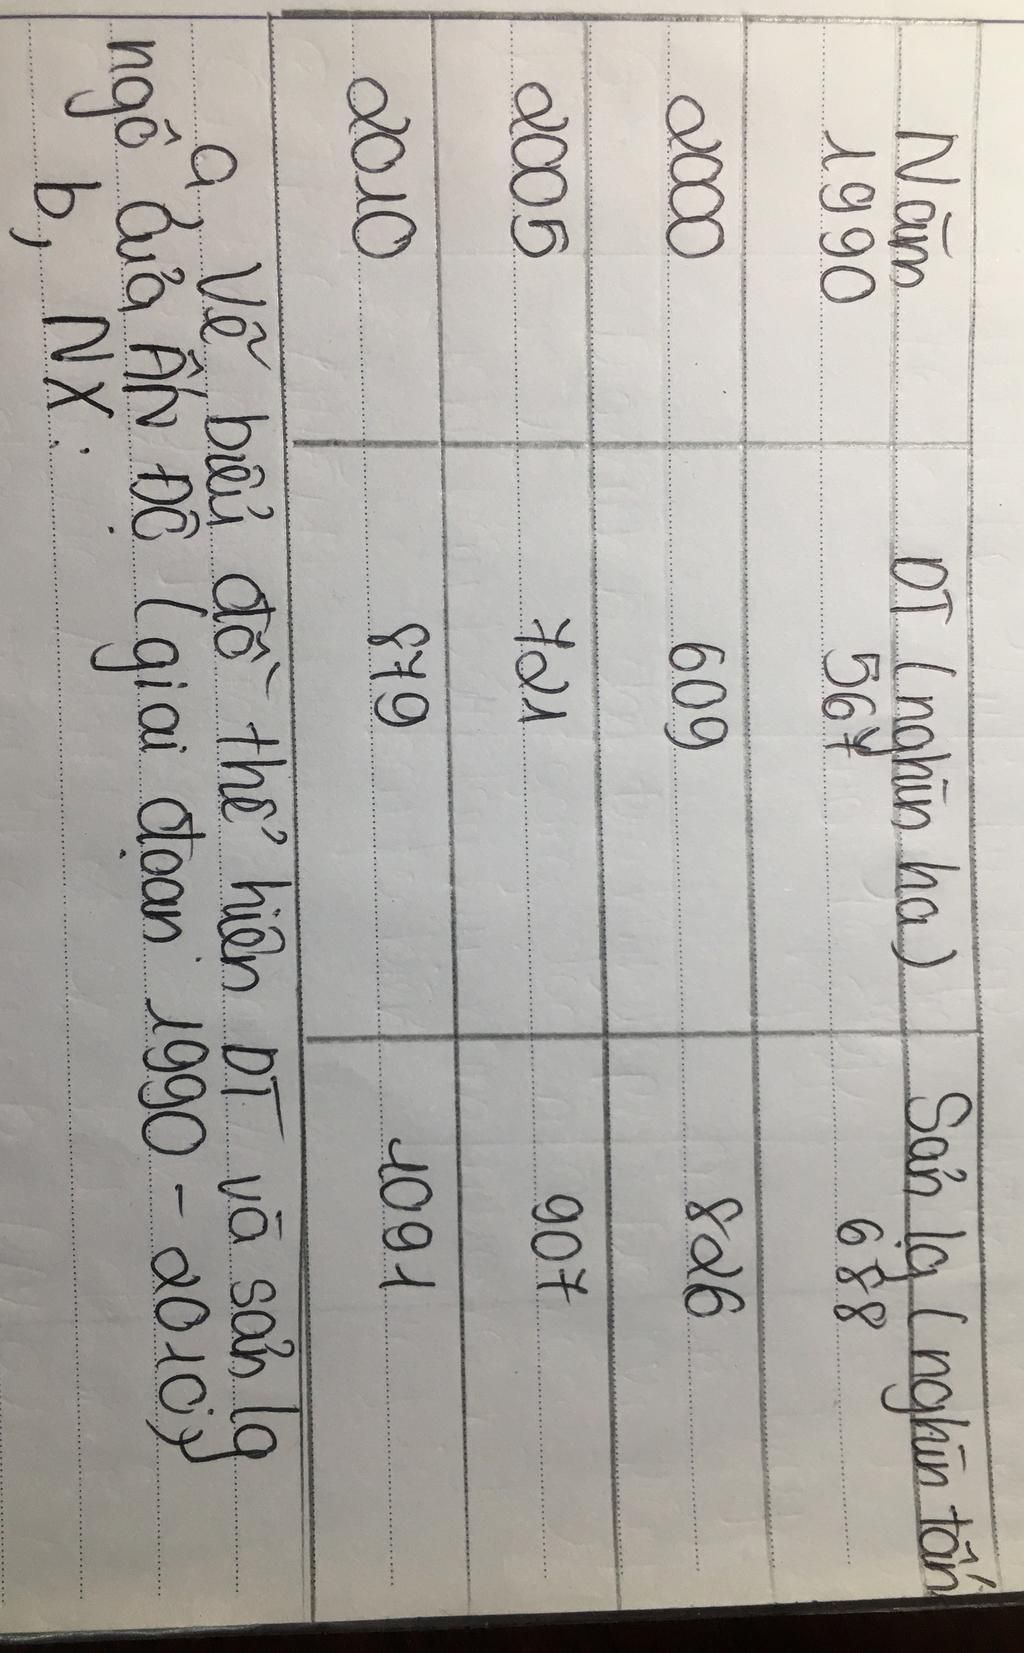 Năm DT (nghìn ha) Sản lg (nghìn tấn
1990 567 688
2000 609 826
2005 721 907
2010 879 1091
a, Vẽ biểu đồ thể hiện DT và sản lg
ngô của Ấn Độ (giai đoạn 1990 - 2010)
b, NX: